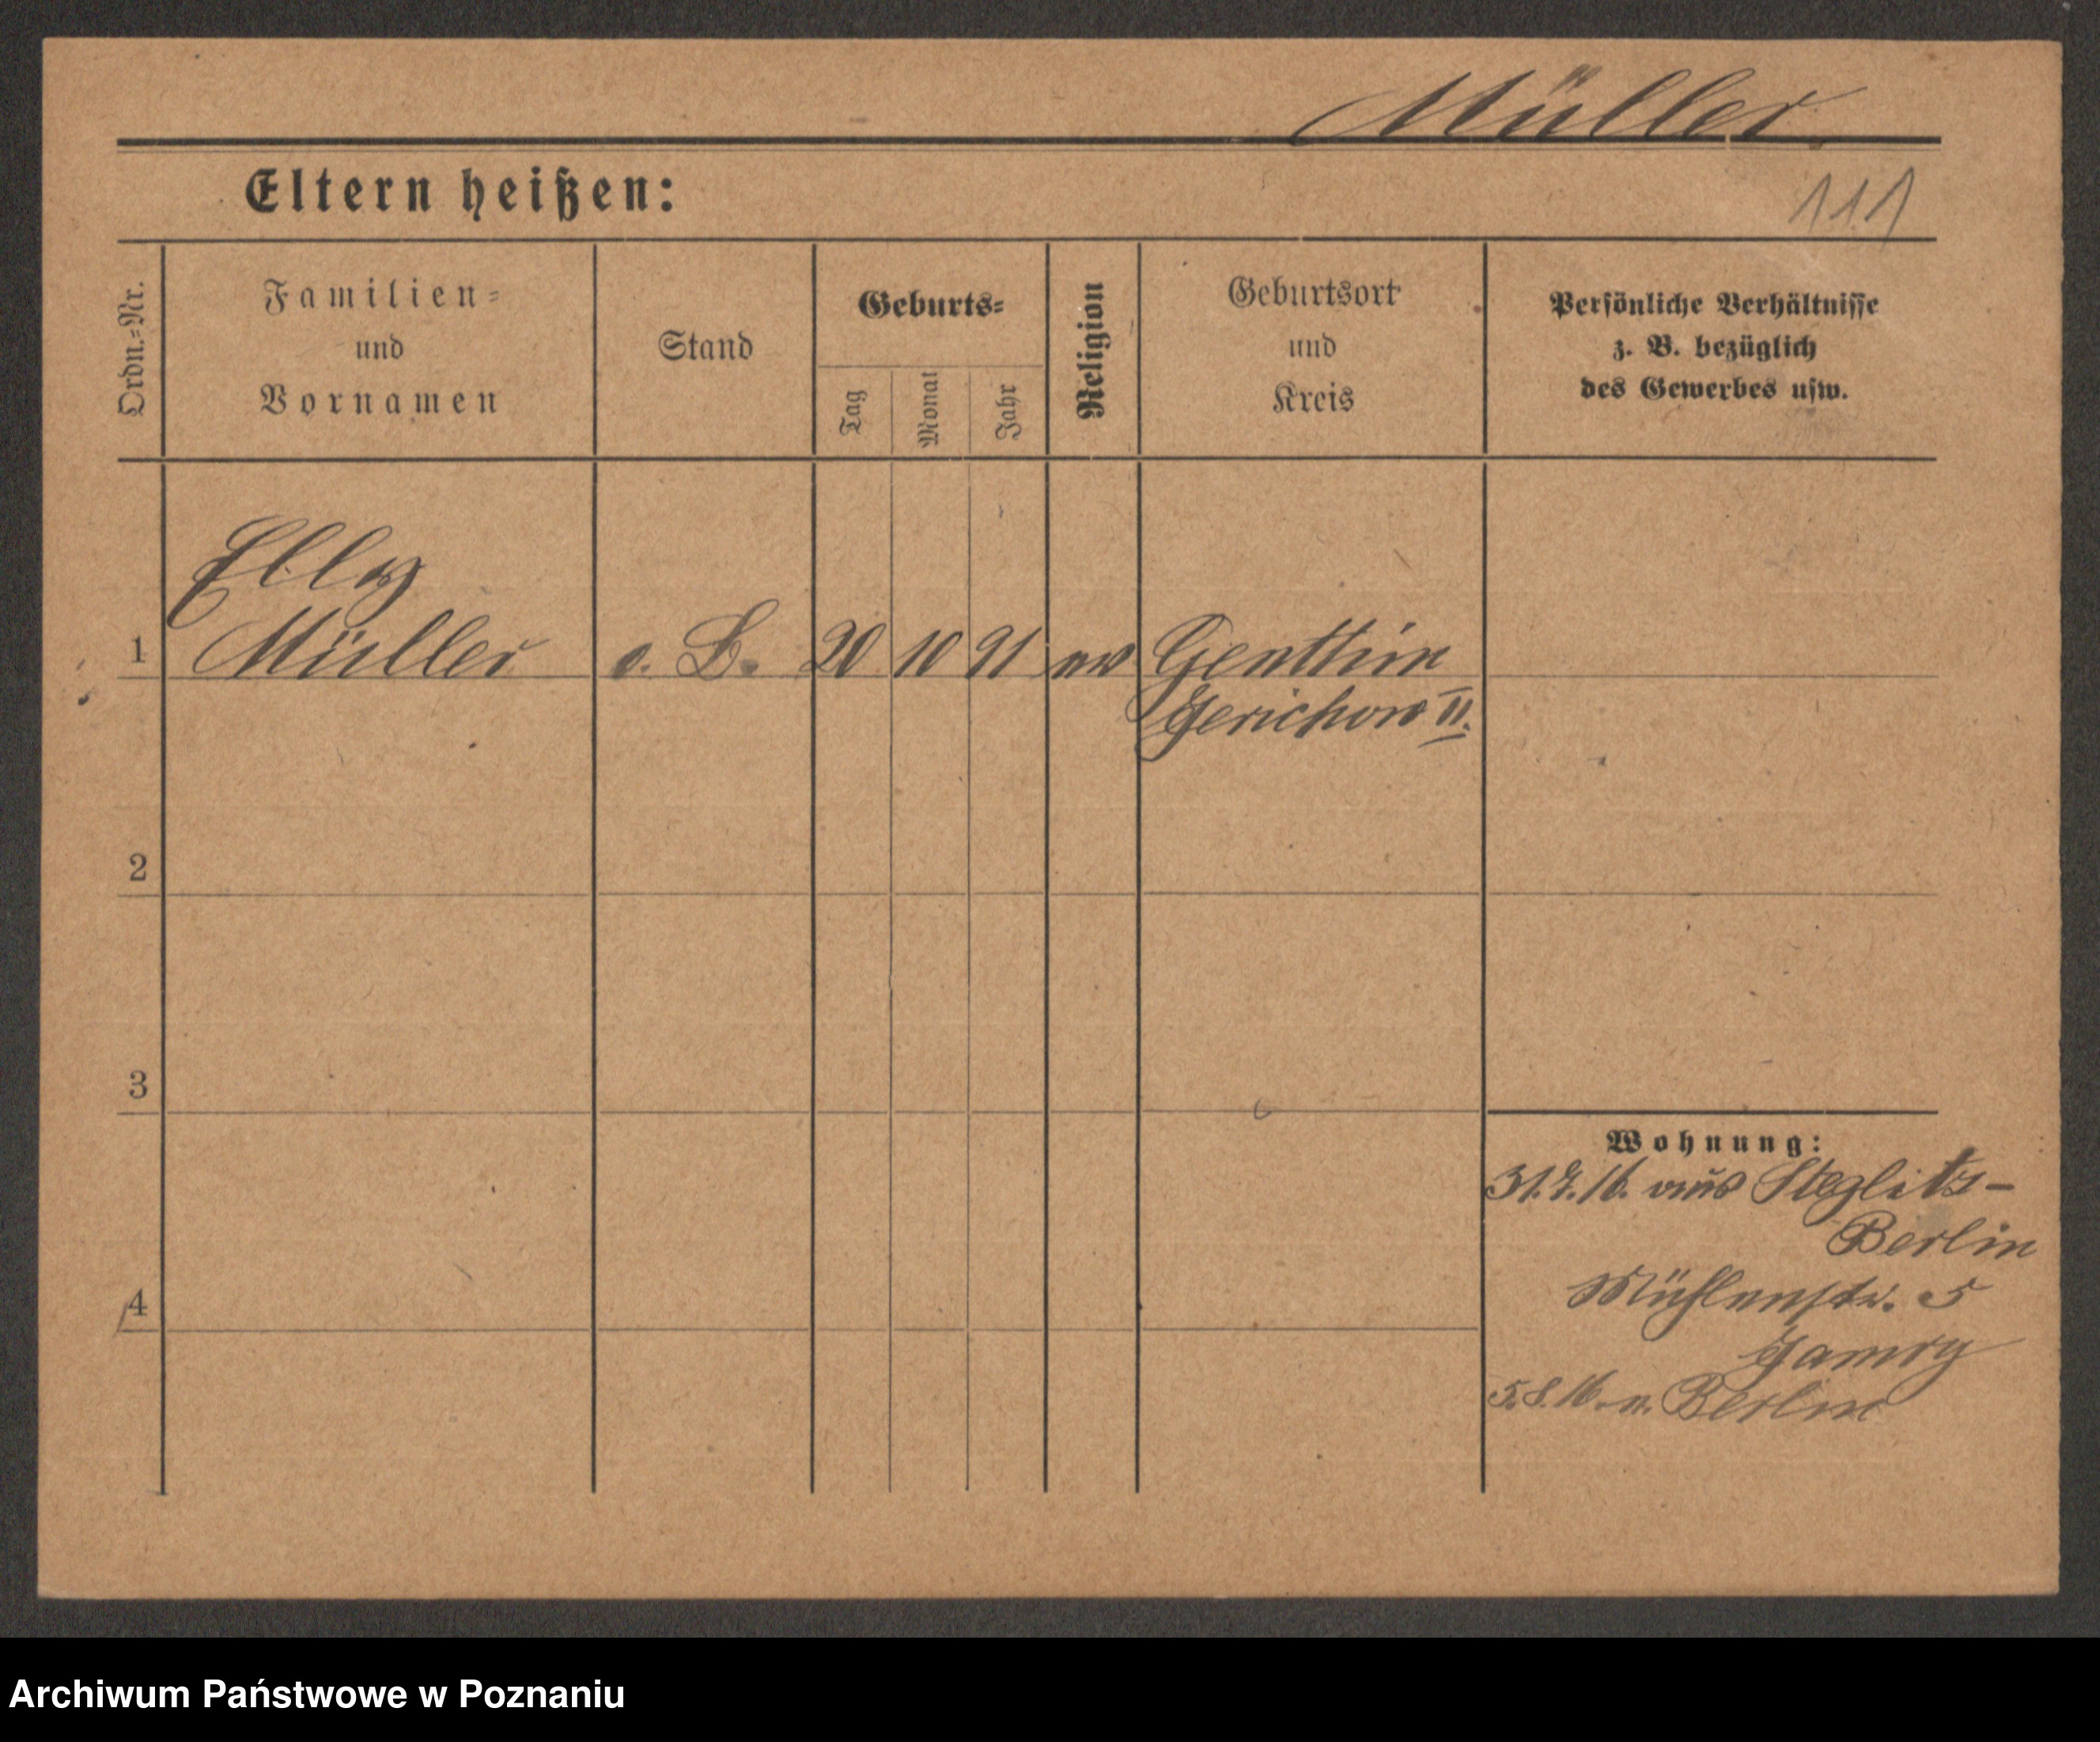 Müller
Eltern heißen:
111
Ordn.=Nr.
Familien=
und
Vornamen
Stand
Geburts=
Tag
Monat
Jahr
Religion
Geburtsort
und
Kreis
Persönliche Verhältnisse
z. B. bezüglich
des Gewerbes usw.
Elly
1 Müller o. B. 20 10 91 ev Genthin
Jerichow II.
2
3
4
Wohnung:
31.7.16. aus Steglitz-
Berlin
Mühlenstr. 5
5.8.16. n. Berlin
Archiwum Państwowe w Poznaniu